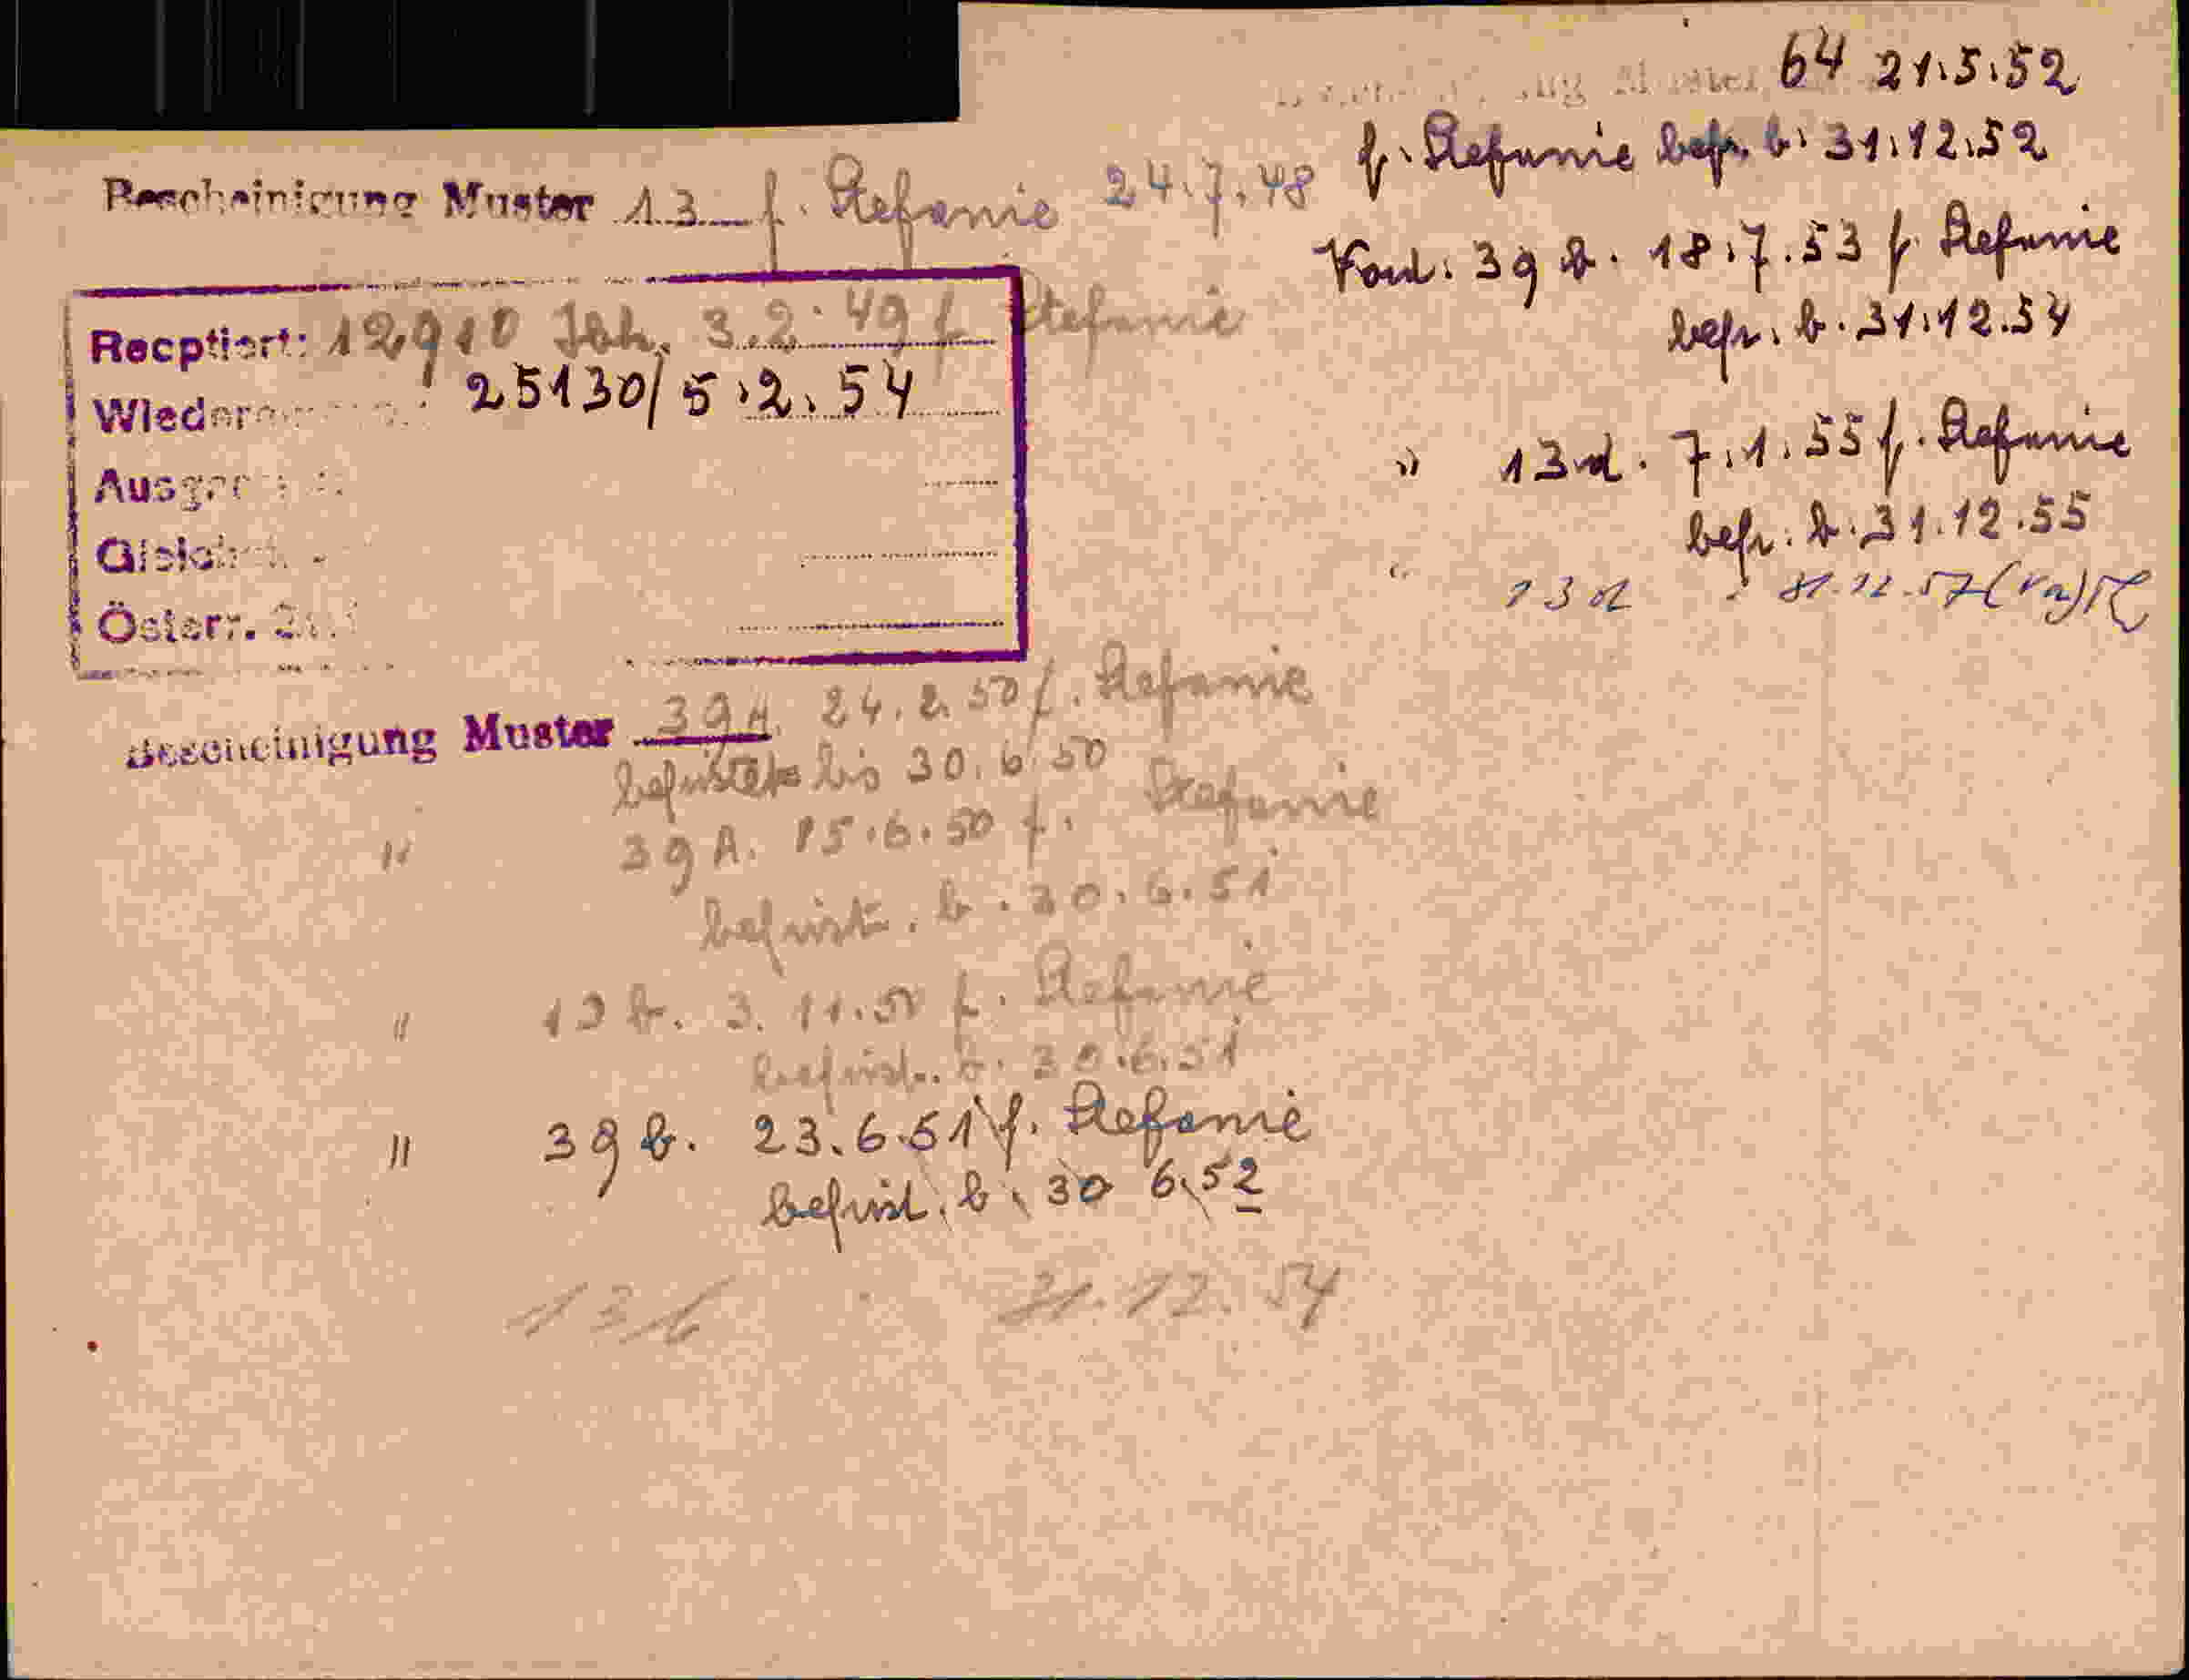 Bescheinigung Muster 13 f. Stefanie 24.7.48
Recptiert: 12910 3.2.49 f. Stefanie
25130/5.2.54
Österr.
Bescheinigung Muster 39A. 24.2.50 f. Stefanie
befristet bis 30.6.50
" 39A. 15.6.50 f. Stefanie
befrist. b. 30.6.51
" 13 b. 3.11.50 f. Stefanie
befrist. b. 30.6.51
" 39 b. 23.6.51 f. Stefanie
befrist. b. 30 6.52
13b 31.12.54
64 21.5.52
f. Stefanie befr. b. 31.12.52
39 b. 18.7.53 f. Stefanie
befr. b. 31.12.54
" 13 d. 7.1.55 f. Stefanie
befr. b. 31.12.55
" 13d 31.12.57